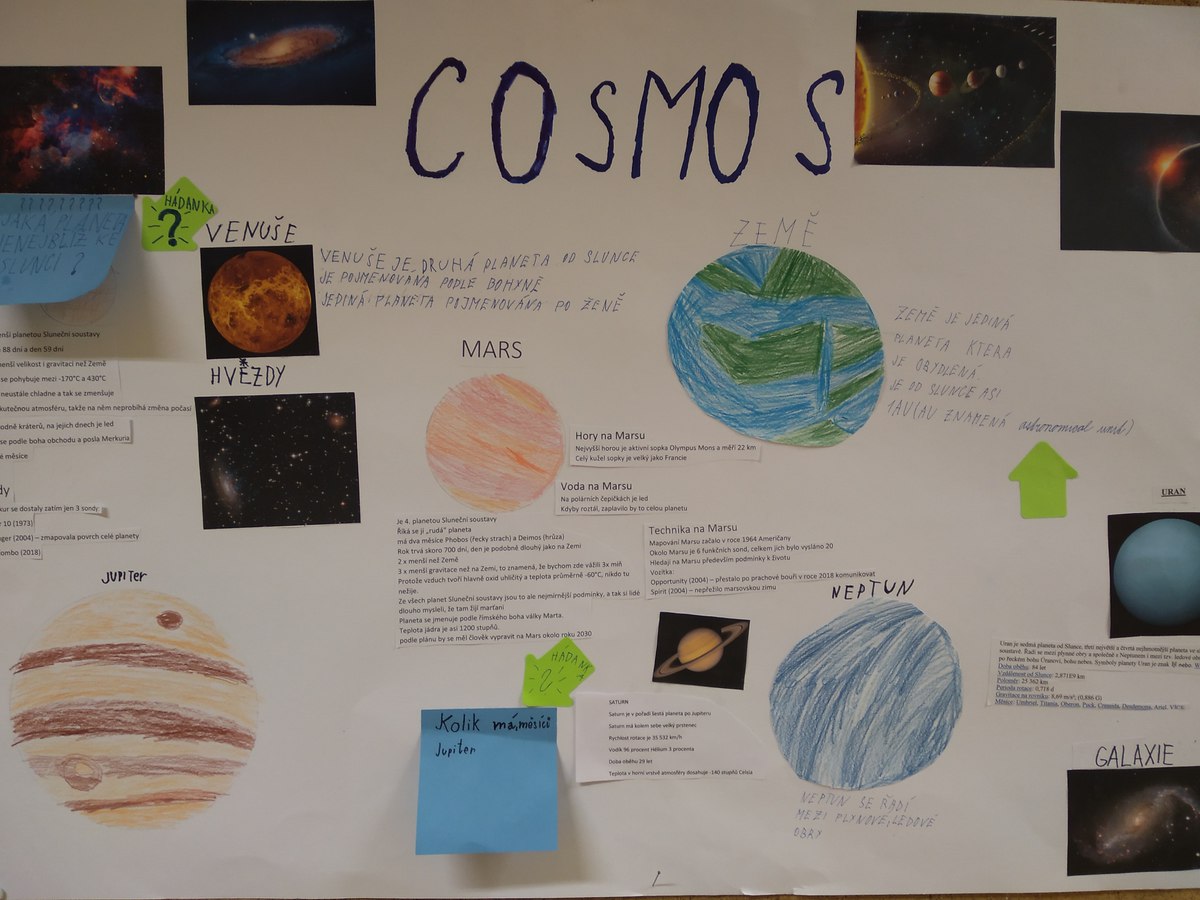 COSMOS
????????
JAKÁ PLANET
JENEJBLÍŽ KE
SLUNCI ?
HÁDANKA
?
VENUŠE
VENUŠE JE DRUHÁ PLANETA OD SLUNCE
JE POJMENOVANÁ PODLE BOHYNĚ
JEDINÁ PLANETA POJMENOVÁNA PO ŽENĚ
ZEMĚ
ZEMĚ JE JEDINÁ
PLANETA KTERA
JE OBYDLENÁ
JE OD SLUNCE ASI
1AU(AU ZNAMENÁ astronomical unit)
enší planetou Sluneční soustavy
88 dní a den 59 dní
menší velikost i gravitaci než Země
se pohybuje mezi -170°C a 430°C
neustále chladne a tak se zmenšuje
kutečnou atmosféru, takže na něm neprobíhá změna počasí
odně kráterů, na jejich dnech je led
se podle boha obchodu a posla Merkuria
é měsíce
dy
kur se dostaly zatím jen 3 sondy:
r 10 (1973)
ger (2004) – zmapovala povrch celé planety
ombo (2018)
HVĚZDY
MARS
Hory na Marsu
Nejvyšší horou je aktivní sopka Olympus Mons a měří 22 km
Celý kužel sopky je velký jako Francie
Voda na Marsu
Na polárních čepičkách je led
Kdyby roztál, zaplavilo by to celou planetu
Je 4. planetou Sluneční soustavy
Říká se jí „rudá" planeta
má dva měsíce Phobos (řecky strach) a Deimos (hrůza)
Rok trvá skoro 700 dní, den je podobně dlouhý jako na Zemi
2 x menší než Země
3 x menší gravitace než na Zemi, to znamená, že bychom zde vážili 3x míň
Protože vzduch tvoří hlavně oxid uhličitý a teplota průměrně -60°C, nikdo tu
nežije.
Ze všech planet Sluneční soustavy jsou to ale nejmírnější podmínky, a tak si lidé
dlouho mysleli, že tam žijí marťani
Planeta se jmenuje podle římského boha války Marta.
Teplota jádra je asi 1200 stupňů.
podle plánu by se měl člověk vypravit na Mars okolo roku 2030
Technika na Marsu
Mapování Marsu začalo v roce 1964 Američany
Okolo Marsu je 6 funkčních sond, celkem jich bylo vysláno 20
Hledají na Marsu především podmínky k životu
Vozítka:
Opportunity (2004) – přestalo po prachové bouři v roce 2018 komunikovat
Spirit (2004) – nepřežilo marsovskou zimu
JUPITER
HÁDANK
?
Kolik má měsíci
Jupiter
SATURN
Saturn je v pořadí šestá planeta po Jupiteru
Saturn má kolem sebe velký prstenec
Rychlost rotace je 35 532 km/h
Vodík 96 procent Hélium 3 procenta
Doba oběhu 29 let
Teplota v horní vrstvě atmosféry dosahuje -140 stupňů Celsia
NEPTUN
NEPTUN SE ŘADÍ
MEZI PLYNOVÉ, LEDOVÉ
OBRY
URAN
Uran je sedmá planeta od Slunce, třetí největší a čtvrtá nejhmotnější planeta ve sl
soustavě. Řadí se mezi plynné obry a společně s Neptunem i mezi tzv. ledové obr
po řeckém bohu Uranovi, bohu nebes. Symboly planety Uran je znak
Doba oběhu: 84 let
Vzdálenost od Slunce: 2,871E9 km
Poloměr: 25 362 km
Perioda rotace: 0,718 d
Gravitace na rovníku: 8,69 m/s²; (0,886 G)
Měsíce: Umbriel, Titania, Oberon, Puck, Cressida, Desdemona, Ariel,
GALAXIE